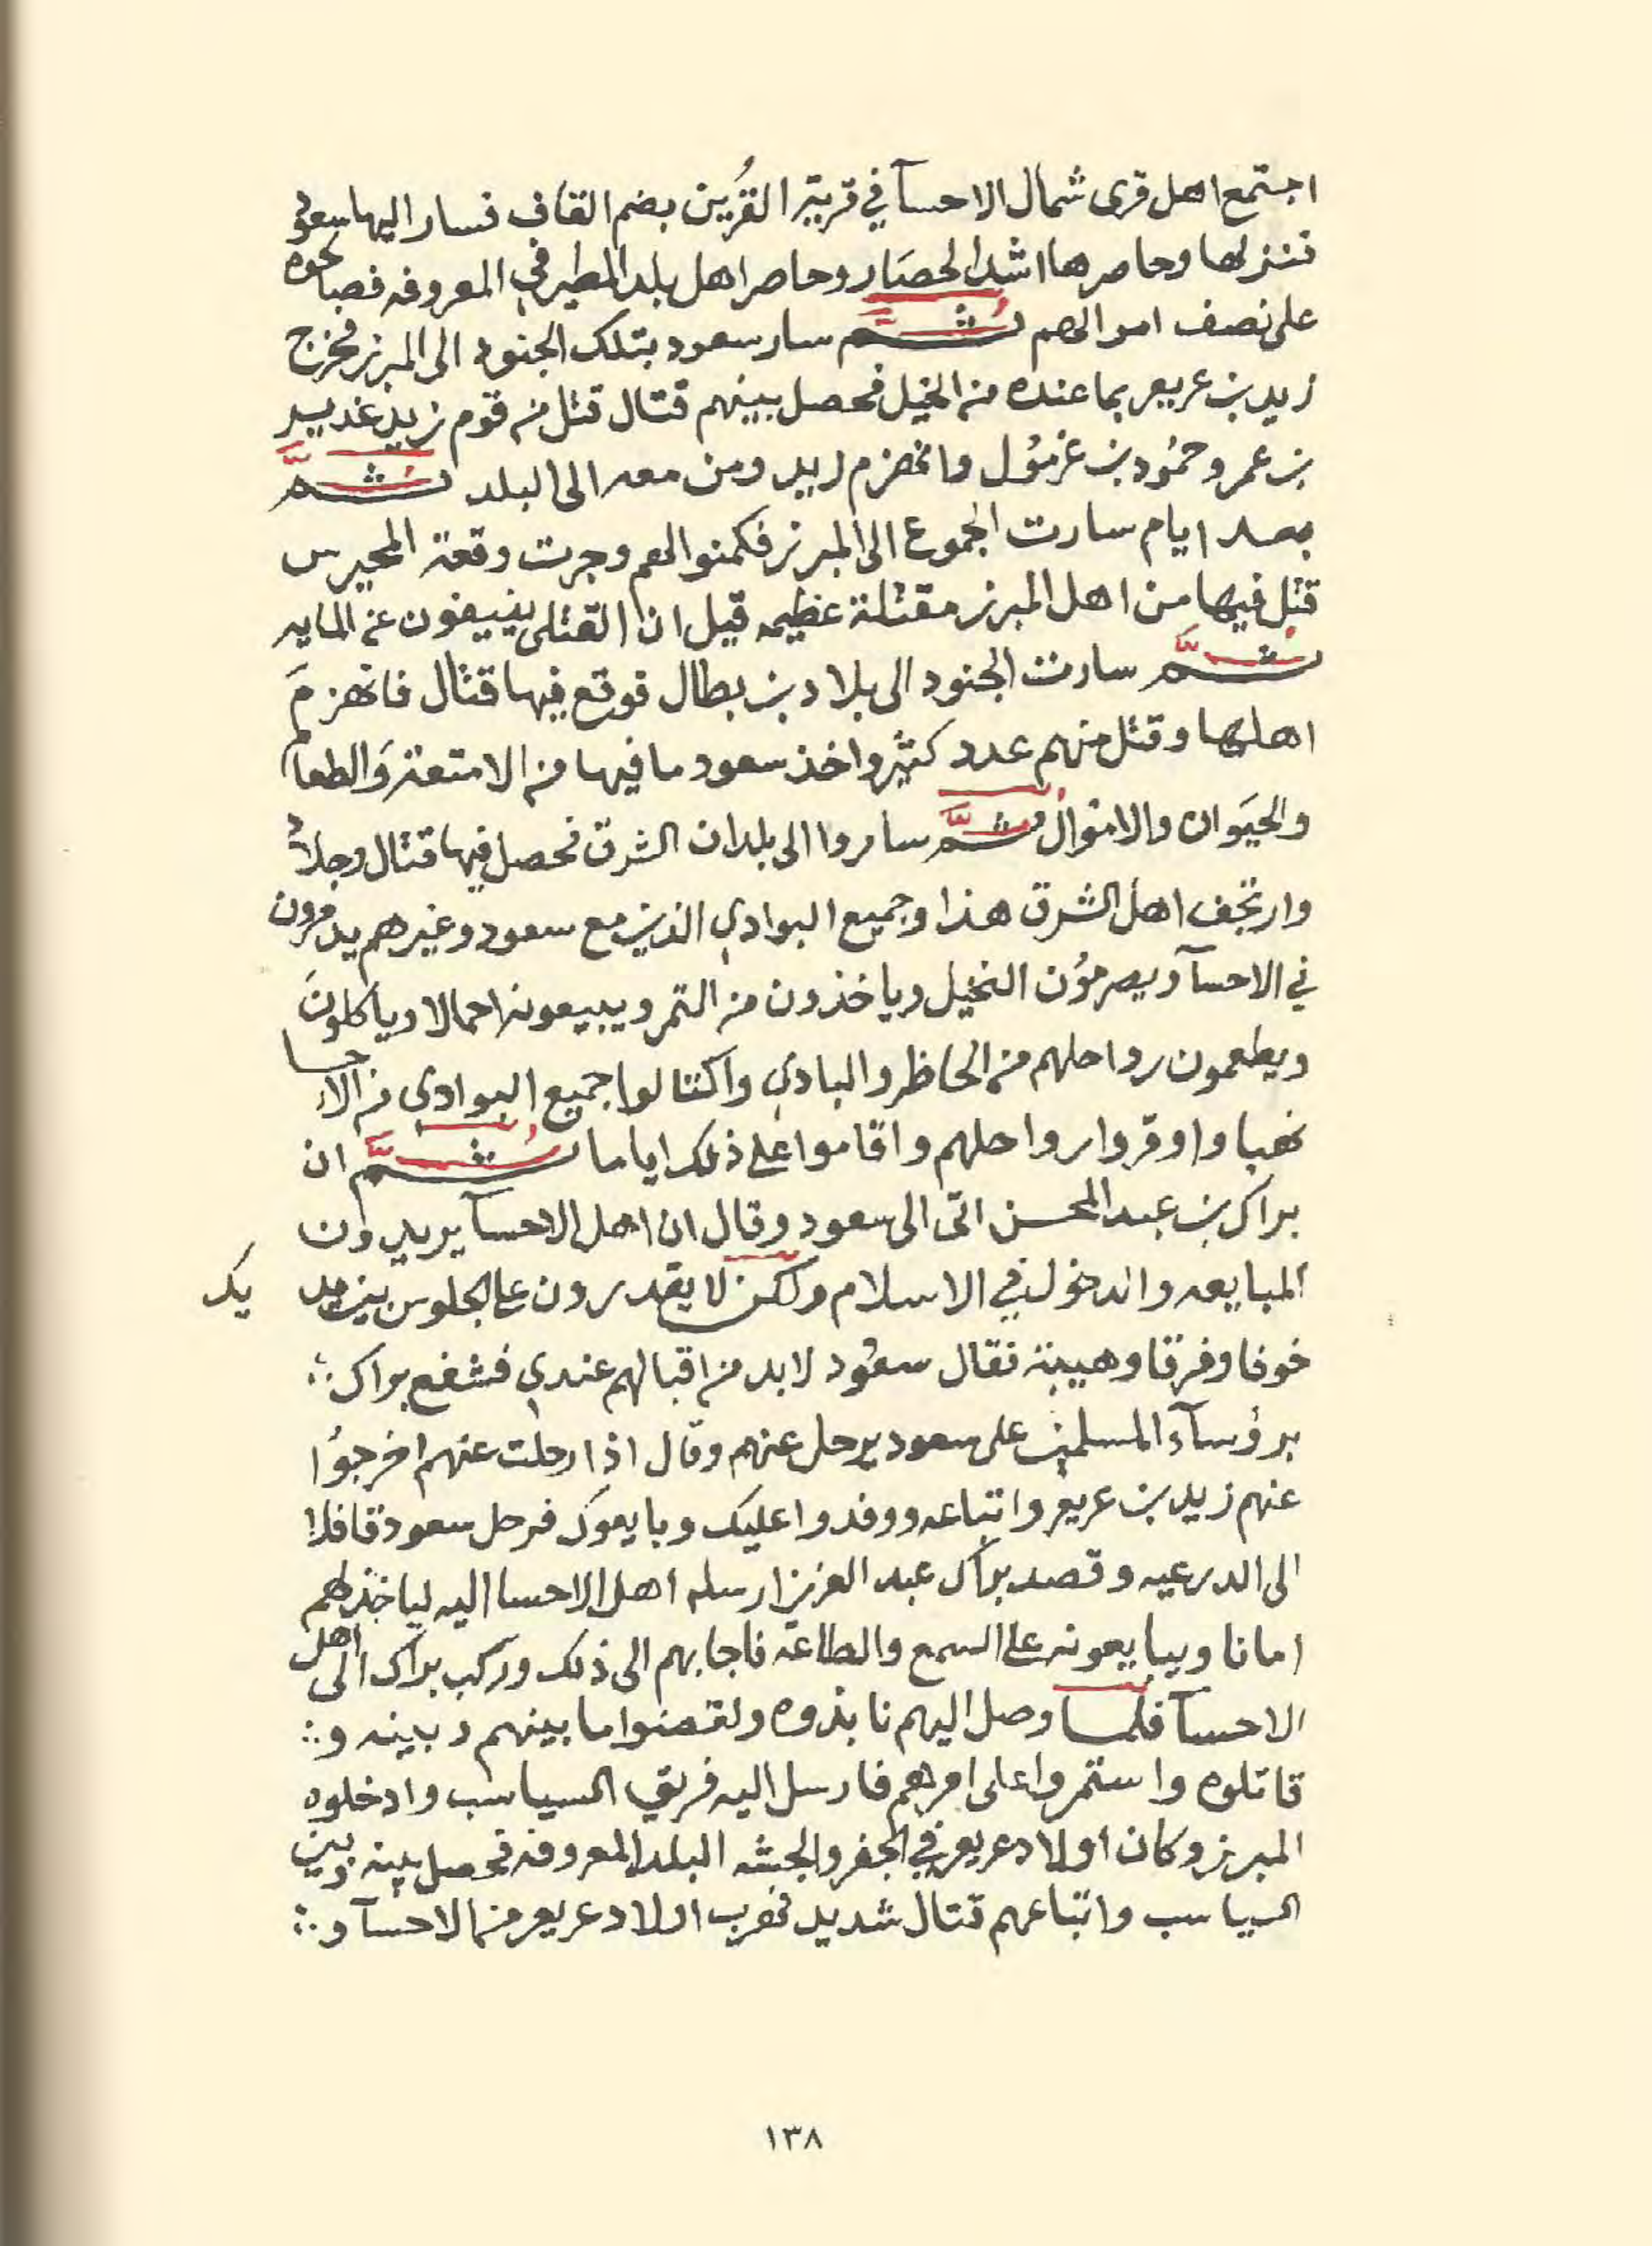 اجتمع اهل قرى شمال الاحسآ في قرية القُرين بضم القاف فسار اليها سعود
فنزلها وحاصرها اشد الحصَار وحاصر اهل بلد المطيرفي المعروفه فصالحوه
على نصف اموالهم ثُمَّ سار سعود بتلك الجنود الى المبرز فخرج
زيد بن عريعر بما عنده من الخيل فحصل بينهم قتال قتل من قوم زيد غدير
بن عمر وحمُود بن غرمُول وانهزم زيد ومن معه الى البلد ثُمَّ
بعد ايام سارت الجموع الى المبرز فكمنوا لهم وجرت وقعة المحيرس
قتل فيها من اهل المبرز مقتلة عظيمه قيل ان القتلى ينيفون عن المايه
ثُمَّ سارت الجنود الى بلاد بن بطال فوقع فيها قتال فانهزمَ
اهلها وقتل منهم عدد كثير واخذ سعود ما فيها من الامتعة وَالطعام
والحيَوان والاموال ثُمَّ ساروا الى بلدان الشرق فحصل فيها قتال وجلاد
وارتجف اهل الشرق هذا وجميع البوادي الذين مع سعود وغيرهم يدمرون
في الاحسآ ويصرمُون النخيل وياخذون من التمر ويبيعونه احمالا وياكلونَ
ويطعمون رواحلهم من الحاظر والبادي واكتالوا جميع البوادي من الاحسا
نهبا واوقروا رواحلهم واقاموا على ذلك اياما ثُمَّ ان
براك بن عبد المحسن اتى الى سعود وقال ان اهل الاحسآ يريدون
المبايعه والدخول في الاسلام ولكن لا يقدرون على الجلوس بين يد يك
خوفا وفرقا وهيبة فقال سعود لا بد من اقبالهم عندي فشفع براك
برؤسآء المسلمين على سعود يرحل عنهم وقال اذا رحلت عنهم اخرجوُا
عنهم زيد بن عريعر واتباعه ووفدوا عليك وبايعوك فرحل سعود قافلا
الى الدرعيه وقصد براك عبد العزيز ارسله اهل الاحسا اليه لياخذ لهم
امانا ويبايعونه على السمع والطاعة فاجابهم الى ذلك وركب براك الى اهل
الاحسآ فلما وصل اليهم نابذوه ونقضوا ما بينهم وبينه و
قاتلوه واستمروا على امرهم فارسل اليه فريق السياسب وادخلوه
المبرز وكان اولاد عريعر في الجفر والجشه البلد المعروفه فحصل بينه وبين
السياسب واتباعهم قتال شديد فهرب اولاد عريعر من الاحسآ و
١٣٨